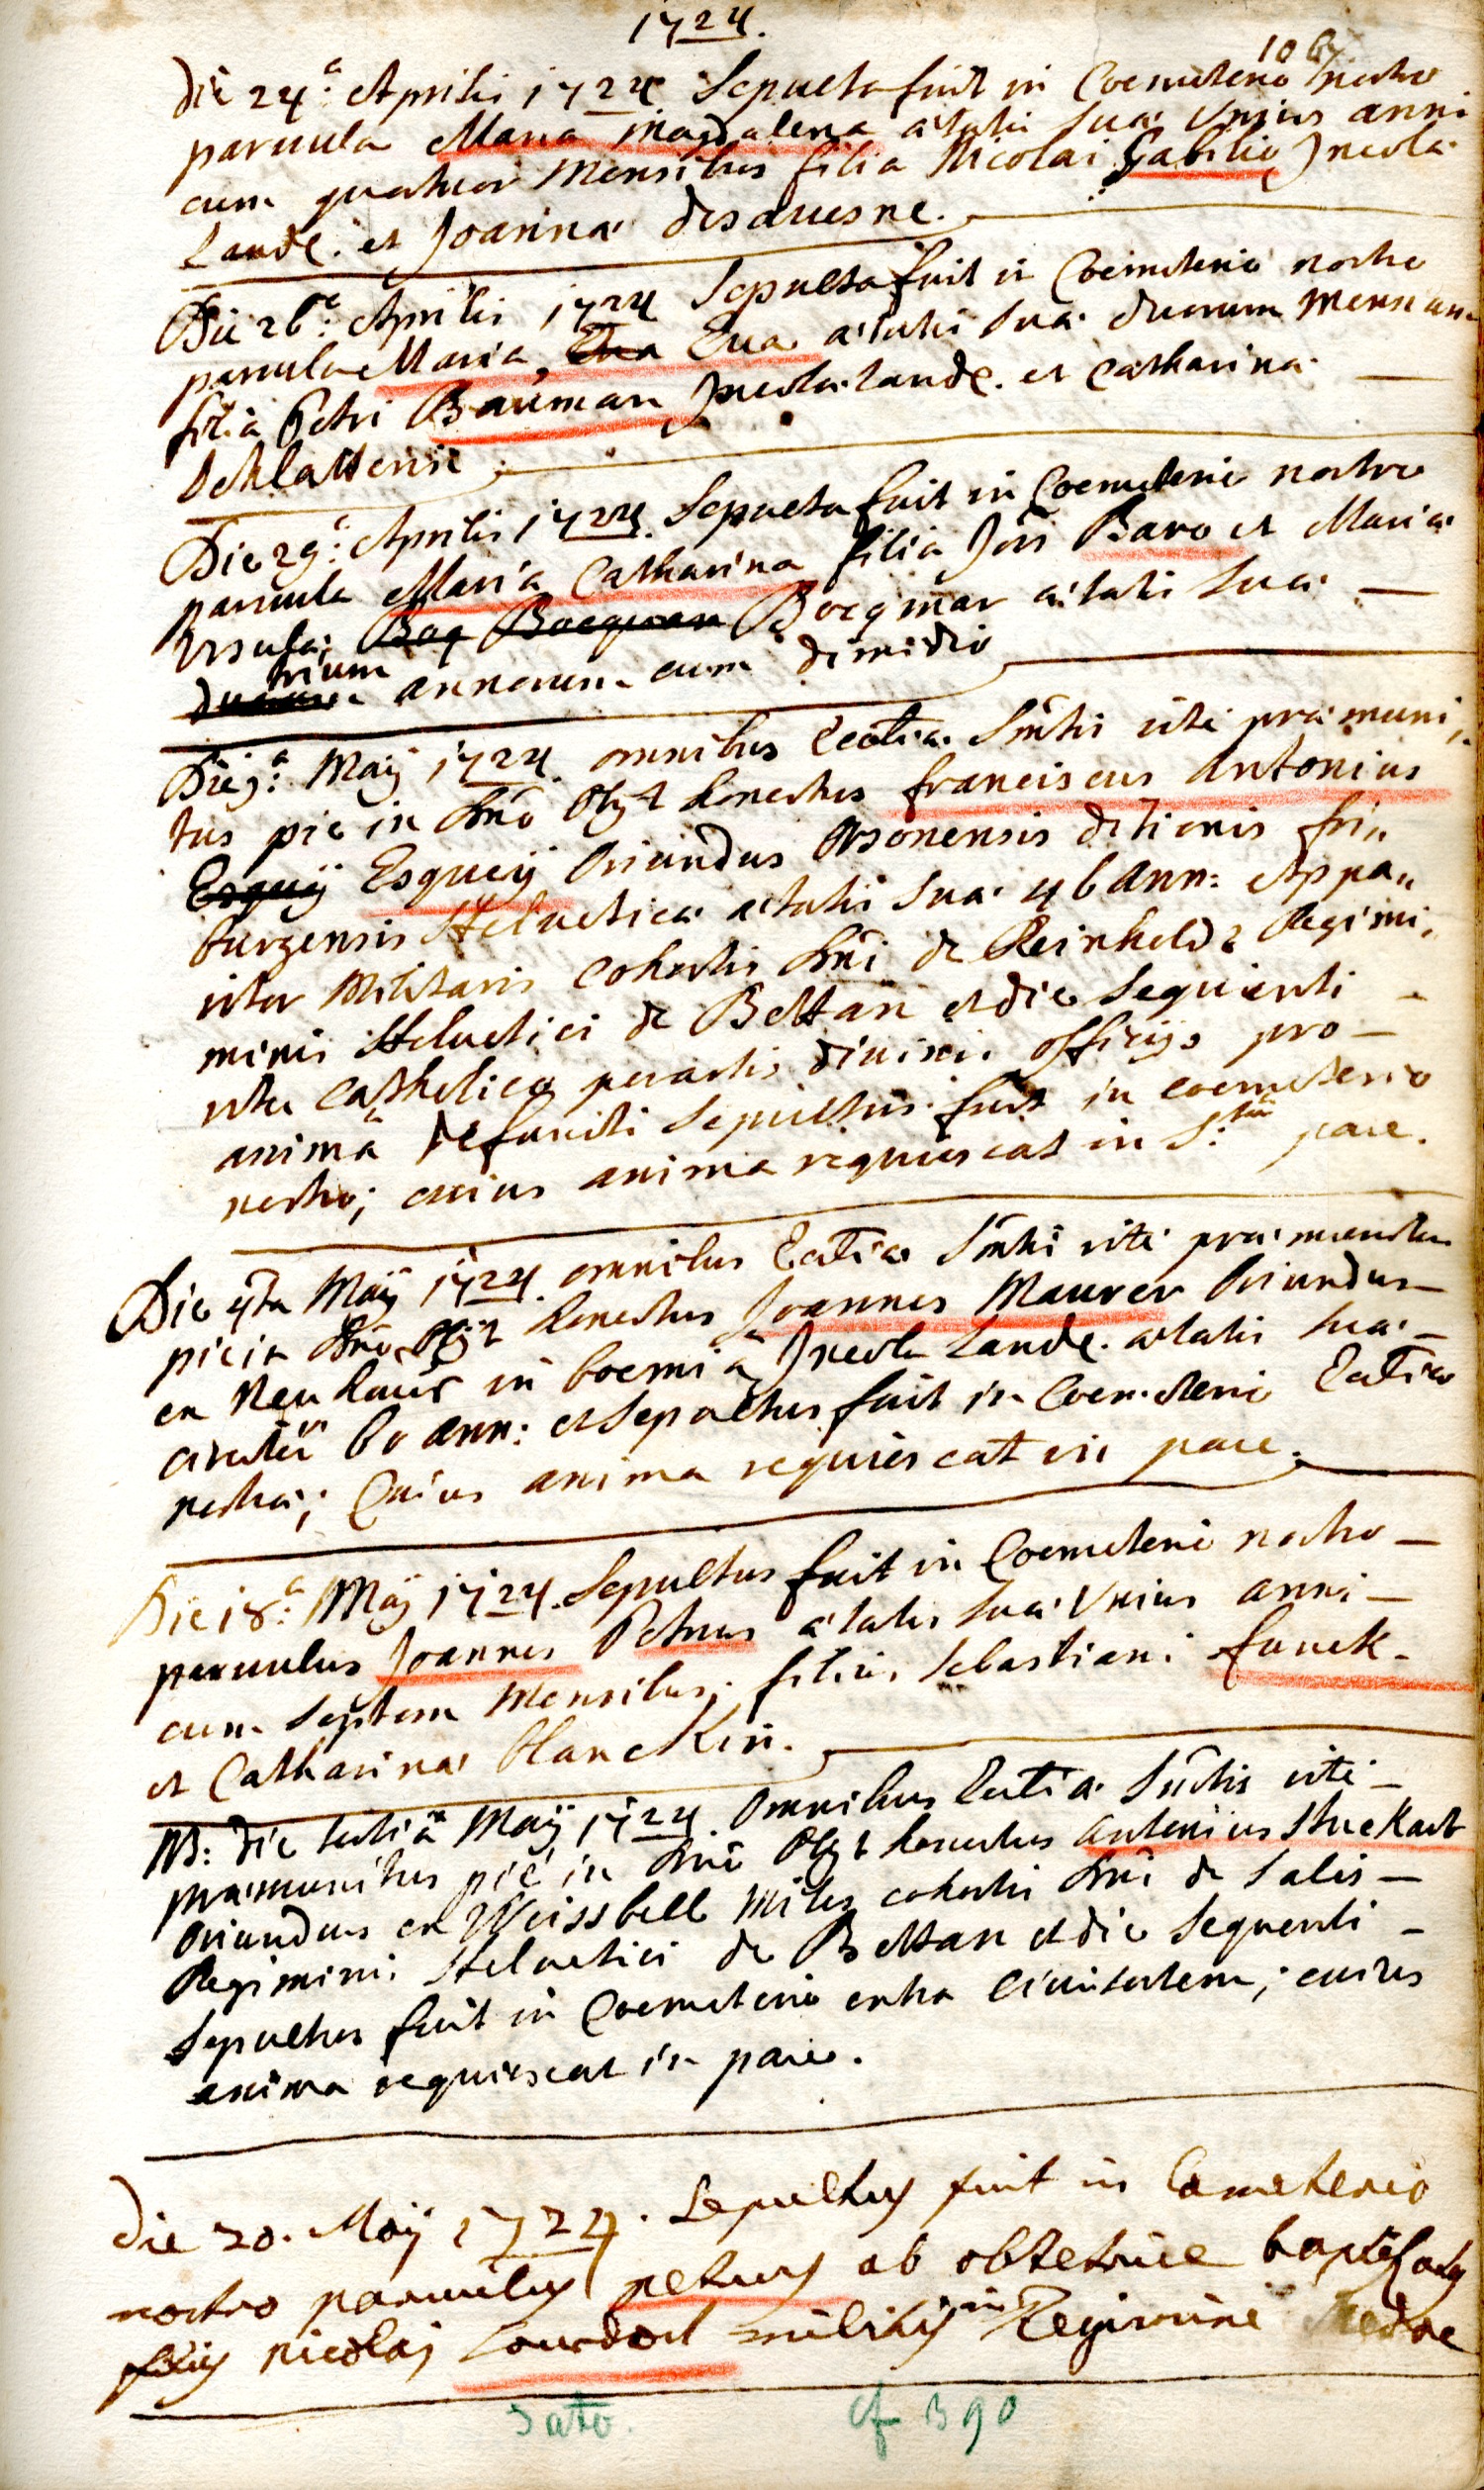 1724.
106
Die 24.a Aprilis 1724 Sepulta fuit in Coemeterio nostro
parvula Maria Magdalena ætatis suæ Unius anni
cum quatuor Mensibus filia Nicolai Gabilio Incolæ
Landt. et Joannæ desavesne.
Die 26.a Aprilis 1724 Sepulta fuit in Coemeterio nostro
parvula Maria, Eva Eva ætatis suæ duorum Mensium
filia Petri Bauman Incolæ Landt. et Catharinæ
Die 29.a Aprilis 1724. Sepulta fuit in Coemeterio nostro
parvula Maria Catharina filia Jōis Baro et Mariæ
Ursulæ Boq Bocqman Bocqmar ætatis suæ
trium
duorum annorum cum dimidio
Maij 1724. omnibus Ecctiæ Smtis rite præmuni,,
tus pie in Dno Obijt honestus franciscus Antonius
Esquij Esqueij Oriundus Orsonensis ditionis fri,,
burgensis Helveticæ ætatis suæ 46 ann: Appa,,
ritor Militaris Cohortis Dni de Reinhold Regimi,,
minis Helvetici de Bettan et die Sequienti
ritu Catholico peractis divinis officijs pro
animâ defuncti Sepultus fuit in coemeterio
nostro; cuius anima requiescat in S.ta pace.
Die 4ta Maij 1724. omnibus Ecctiæ Smtis rite præmunitus
pie in Dno Obijt honestus Joannes Maurer Oriundus
ex Neuhaus in boemiâ Incola Landt. ætatis suæ
circiter 60 ann: et Sepultus fuit in Coemeterio Ecctiæ
nostræ; Cuius anima requiescat in pace.
Die 18.a Maij 1724. Sepultus fuit in Coemeterio nostro
parvulus Joannes Petrus ætatis suæ Unius anni
cum Septem Mensibus filius Sebastiani funck
et Catharinæ blanckin.
NB: die tertiâ Maij 1724. Omnibus Ecctiæ Smtis rite
præmunitus pie in Dno Obijt honestus Antonius Stuckart
Oriundus ex Weissbell Miles cohortis Dni de Salis
Regiminis Helvetici de Bettan et die Sequenti
Sepultus fuit in Coemeterio extra Civitatem; cuius
anima requiescat in pace.
Die 20. Maij 1724. Sepultus fuit in Cæmeterio
nostro parvulus petrus ab obstetrice baptisatus
filius nicolaj Lourdod militis in Regimine
cf B 90